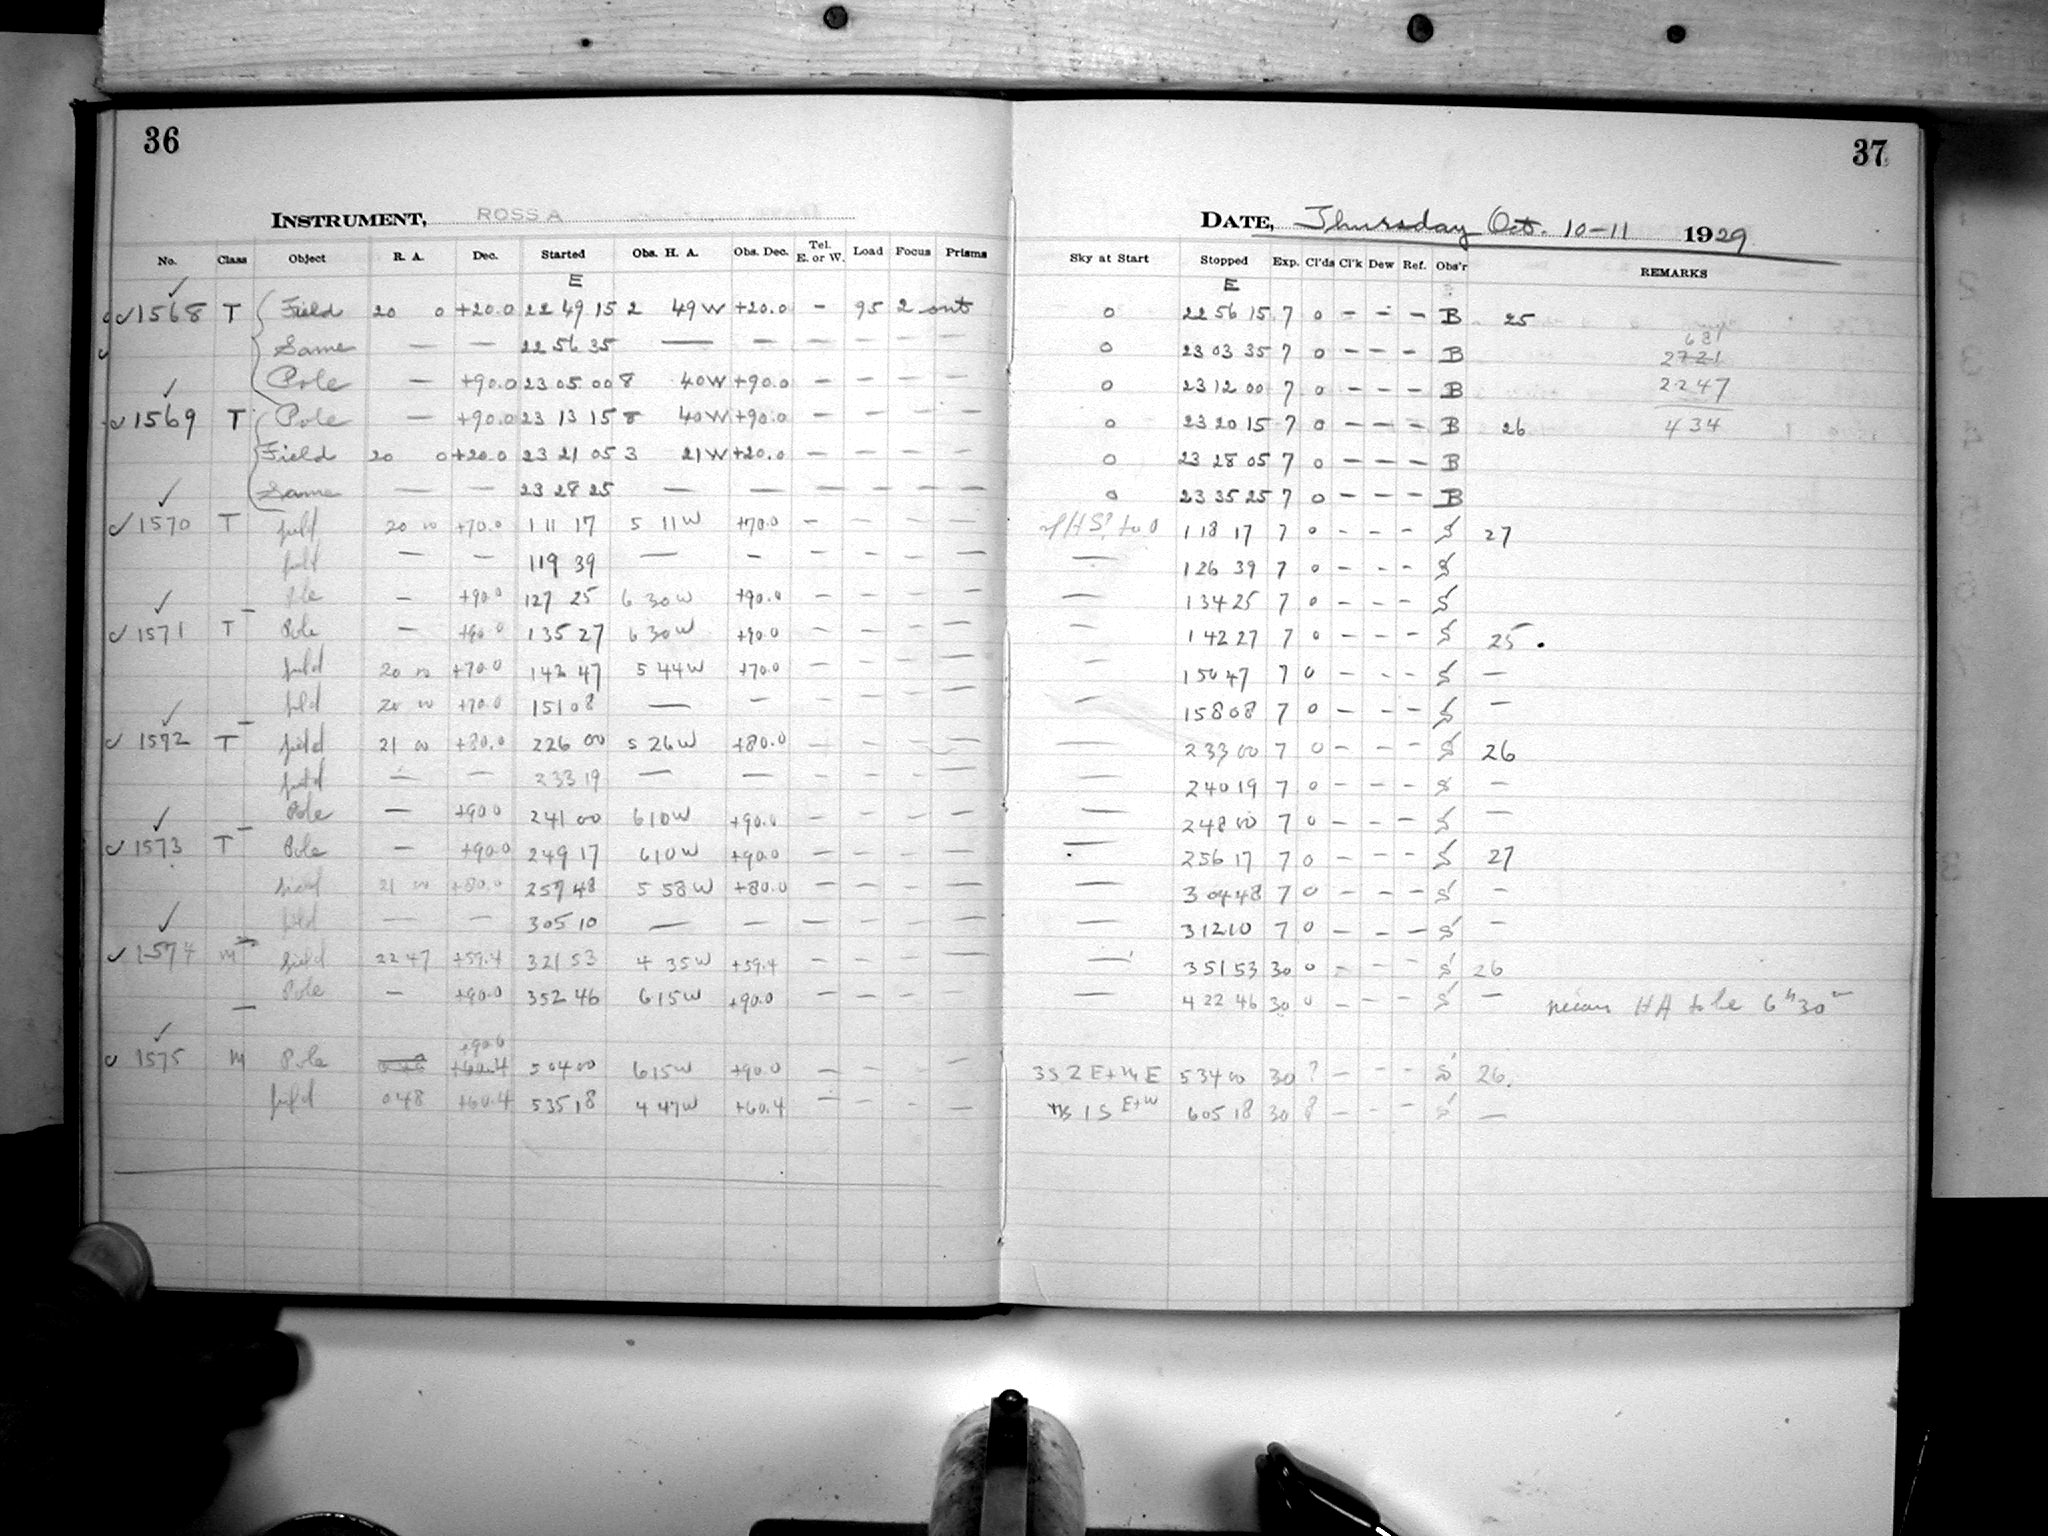 36
INSTRUMENT, ROSS A
No. Class Object R. A. Dec. Started Obs. H. A. Obs. Dec. Tel. E. or W. Load Focus Prisms
E
1568 T Field 20 0 +20.0 22 49 15 2 49 W +20.0 – 95 2 out
Same — — 22 56 35 — — – – – –
Pole — +90.0 23 05 00 8 40 W +90.0 – – – –
1569 T Pole — +90.0 23 13 15 8 40 W +90.0 – – – –
Field 20 0 +20.0 23 21 05 3 21 W +20.0 – – – –
Same — — 23 28 25 — — – – – –
1570 T field 20 00 +70.0 1 11 17 5 11 W +70.0 – – – –
field — — 1 19 39 — — – – – –
Pole — +90.0 1 27 25 6 30 W +90.0 – – – –
1571 T Pole — +90.0 1 35 27 6 30 W +90.0 – – – –
field 20 00 +70.0 1 42 47 5 44 W +70.0 – – – –
field 20 00 +70.0 1 51 08 — — – – – –
1572 T field 21 00 +80.0 2 26 00 5 26 W +80.0 – – – –
field — — 2 33 19 — — – – – –
Pole — +90.0 2 41 00 6 10 W +90.0 – – – –
1573 T Pole — +90.0 2 49 17 6 10 W +90.0 – – – –
field 21 00 +80.0 2 57 48 5 58 W +80.0 – – – –
field — — 3 05 10 — — – – – –
1574 M field 22 47 +59.4 3 21 53 4 35 W +59.4 – – – –
Pole — +90.0 3 52 46 6 15 W +90.0 – – – –
+90.0
1575 M Pole +60.4 5 04 00 6 15 W +90.0 – – –
field 0 48 +60.4 5 35 18 4 47 W +60.4 – – – –
37
DATE, Thursday Oct. 10-11 1929
Sky at Start Stopped Exp. Cl'ds Cl'k Dew Ref. Obs'r REMARKS
E
0 22 56 15 7 0 – – – B 25
681
0 23 03 35 7 0 – – – B 2721
0 23 12 00 7 0 – – – B 2247
0 23 20 15 7 0 – – – B 26 434
0 23 28 05 7 0 – – – B
0 23 35 25 7 0 – – – B
1 18 17 7 0 – – – S 27
— 1 26 39 7 0 – – – S
— 1 34 25 7 0 – – – S
— 1 42 27 7 0 – – – S 25.
— 1 50 47 7 0 – – – S —
— 1 58 08 7 0 – – – S —
— 2 33 00 7 0 – – – S 26
— 2 40 19 7 0 – – – S —
— 2 48 00 7 0 – – – S —
— 2 56 17 7 0 – – – S 27
— 3 04 48 7 0 – – – S —
— 3 12 10 7 0 – – – S —
— 3 51 53 30 0 – – – S 26
— 4 22 46 30 0 – – – S — mean HA to be 6h 30m
3S 2 E+W E 5 34 00 30 ? – – – S 26.
1 S E+W 6 05 18 30 ? – – – S —